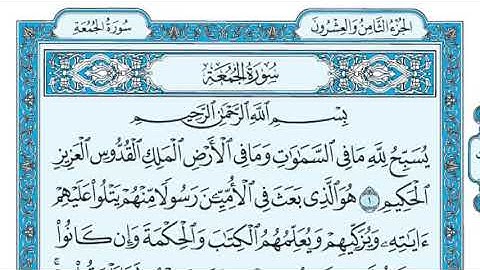 الجزء الثامن والعشرون
سورة الجمعة
سُورَةُ الْجُمُعَةِ
بِسْمِ اللَّهِ الرَّحْمَٰنِ الرَّحِيمِ
يُسَبِّحُ لِلَّهِ مَا فِي السَّمَاوَاتِ وَمَا فِي الْأَرْضِ الْمَلِكِ الْقُدُّوسِ الْعَزِيزِ
الْحَكِيمِ ١ هُوَ الَّذِي بَعَثَ فِي الْأُمِّيِّينَ رَسُولًا مِّنْهُمْ يَتْلُوا عَلَيْهِمْ
ءَايَاتِهِ وَيُزَكِّيهِمْ وَيُعَلِّمُهُمُ الْكِتَابَ وَالْحِكْمَةَ وَإِن كَانُوا